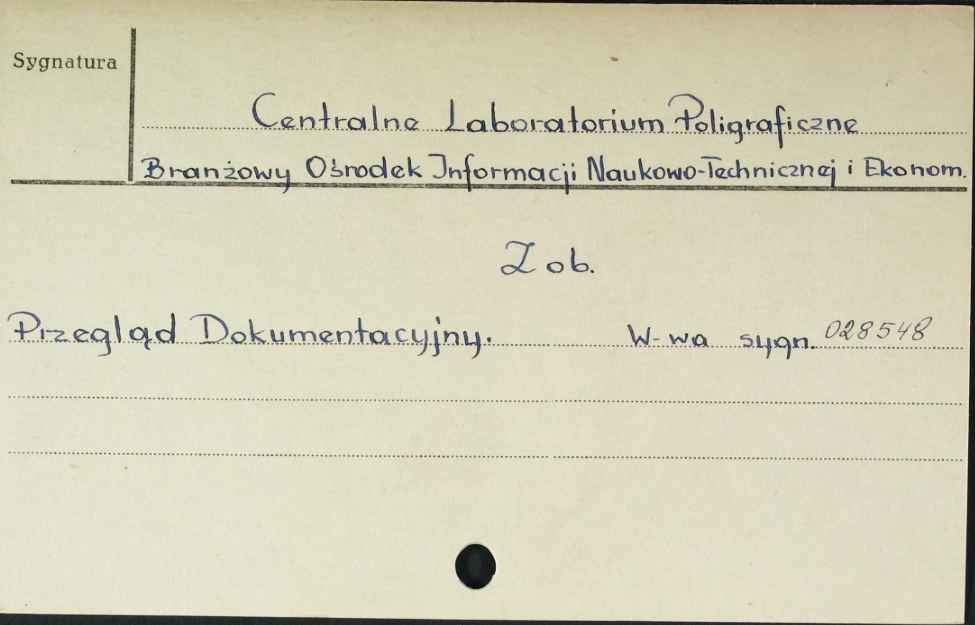 Sygnatura
Centralne Laboratorium Poligraficzne
Branżowy Ośrodek Informacji Naukowo-Technicznej i Ekonom.
Zob.
Przegląd Dokumentacyjny. W-wa sygn. 028548